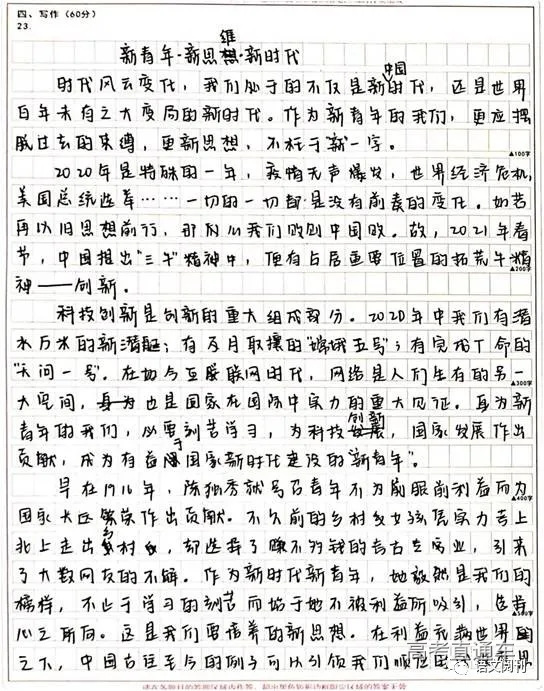 四、写作（60分）
23.
维
新青年·新思想·新时代
中国
时代风云变化，我们处于的不仅是新时代，还是世界
百年未有之大变局的新时代。作为新青年的我们，更应摆
脱过去的束缚，更新思想，不枉于“新”一字。
▲100字
2020年是特殊的一年，疫情无声爆发，世界经济危机，
美国总统选举……一切的一切都是没有前奏的变化。如若
再以旧思想前行，那何以我们败则中国败。故，2021年春
节，中国推出“三牛”精神中，便有占居重要位置的拓荒牛精
▲200字
神——创新。
科技创新是创新的重大组成部分。2020年中我们有潜
水万米的新潜艇；有及月取壤的“嫦娥五号”；有完成丁命的
“天问一号”。在如今互联网时代，网络是人们生存的另一
▲300字
大空间，也是国家在国际中实力的重大见证。身为新
创新
青年的我们，必要刻苦学习，为科技，国家发展作出
于
贡献，成为有益国家新时代建设的“新青年”。
早在1916年，陈独秀就号召青年不为屈服前利益而为
▲400字
国家大区繁荣作出贡献。不久前的乡村女孩凭实力考上
乡
北上走出村，却选择了赚不到钱的考古专业，引来
了大数网友的不解。作为新时代新青年，她毅然是我们的
榜样，不止于学习的刻苦而始于她不被利益所吸引，选择
▲500字
心之所向。这是我们要培养的新思想。在利益充满世界的
之下，中国古往至今的例子可以引领我们顺应
高考直通车
语文月刊
请在各题目的答题区域内作答，超出黑色矩形边框限定区域的答案无效